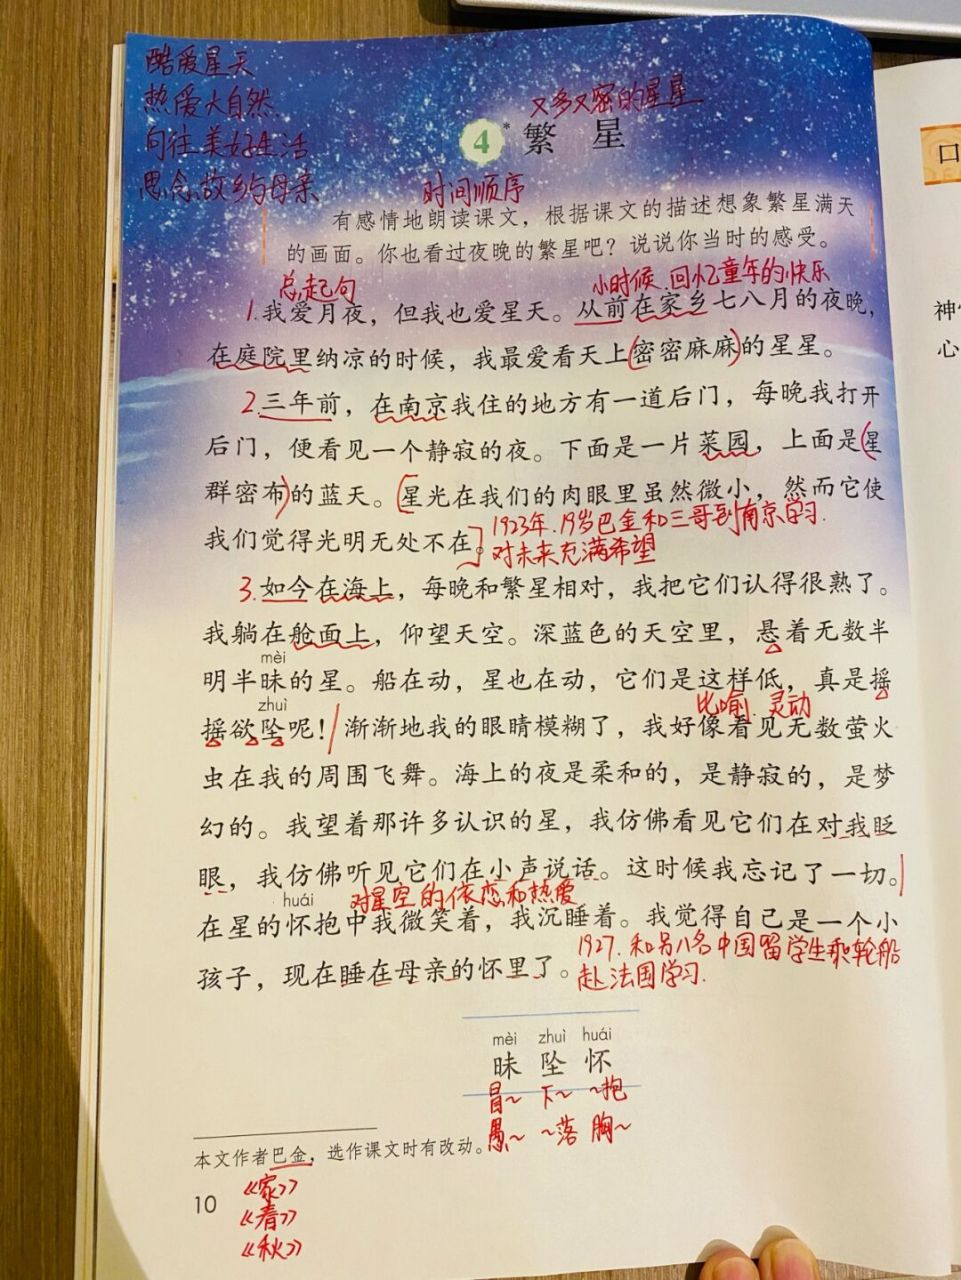 酷爱星天
热爱大自然
向往美好生活
思念故乡与母亲
又多又密的星星
4*繁 星
时间顺序
有感情地朗读课文，根据课文的描述想象繁星满天
的画面。你也看过夜晚的繁星吧？说说你当时的感受。
总起句
小时候.回忆童年的快乐
1.我爱月夜，但我也爱星天。从前在家乡七八月的夜晚，
在庭院里纳凉的时候，我最爱看天上(密密麻麻)的星星。
2.三年前，在南京我住的地方有一道后门，每晚我打开
后门，便看见一个静寂的夜。下面是一片菜园，上面是(星
群密布)的蓝天。[星光在我们的肉眼里虽然微小，然而它使
我们觉得光明无处不在。]
1923年.19岁巴金和三哥到南京学习.
对未来充满希望
3.如今在海上，每晚和繁星相对，我把它们认得很熟了。
我躺在舱面上，仰望天空。深蓝色的天空里，悬着无数半
mèi
明半昧的星。船在动，星也在动，它们是这样低，真是摇
zhuì
比喻.灵动
摇欲坠呢！渐渐地我的眼睛模糊了，我好像看见无数萤火
虫在我的周围飞舞。海上的夜是柔和的，是静寂的，是梦
幻的。我望着那许多认识的星，我仿佛看见它们在对我眨
眼，我仿佛听见它们在小声说话。这时候我忘记了一切。
huái
对星空的依恋和热爱
在星的怀抱中我微笑着，我沉睡着。我觉得自己是一个小
孩子，现在睡在母亲的怀里了。
1927.和另八名中国留学生乘轮船
赴法国学习.
mèi zhuì huái
昧 坠 怀
冒~ 下~ ~抱
愚~ ~落 胸~
本文作者巴金，选作课文时有改动。
10
《家》
《春》
《秋》
口
神
心